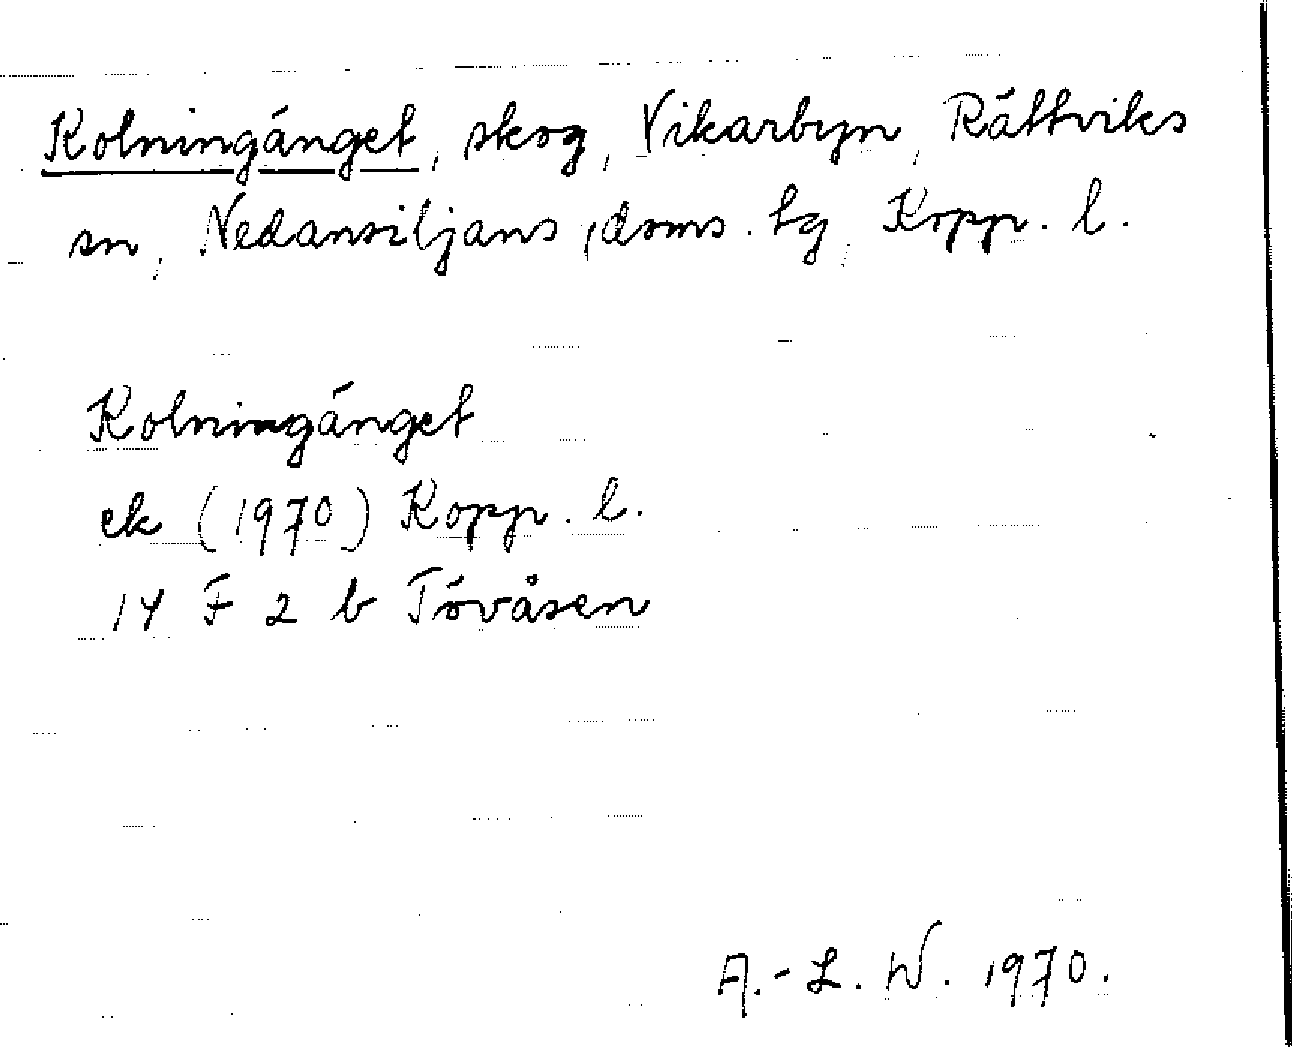 Kolningänget, skog, Vikarbyn, Rättviks
sn, Nedansiljans, doms. tg, Kopp. l.
Kolningänget
ek (1970) Kopp. l.
14 F 2 b Tövåsen
A.-L. W. 1970.